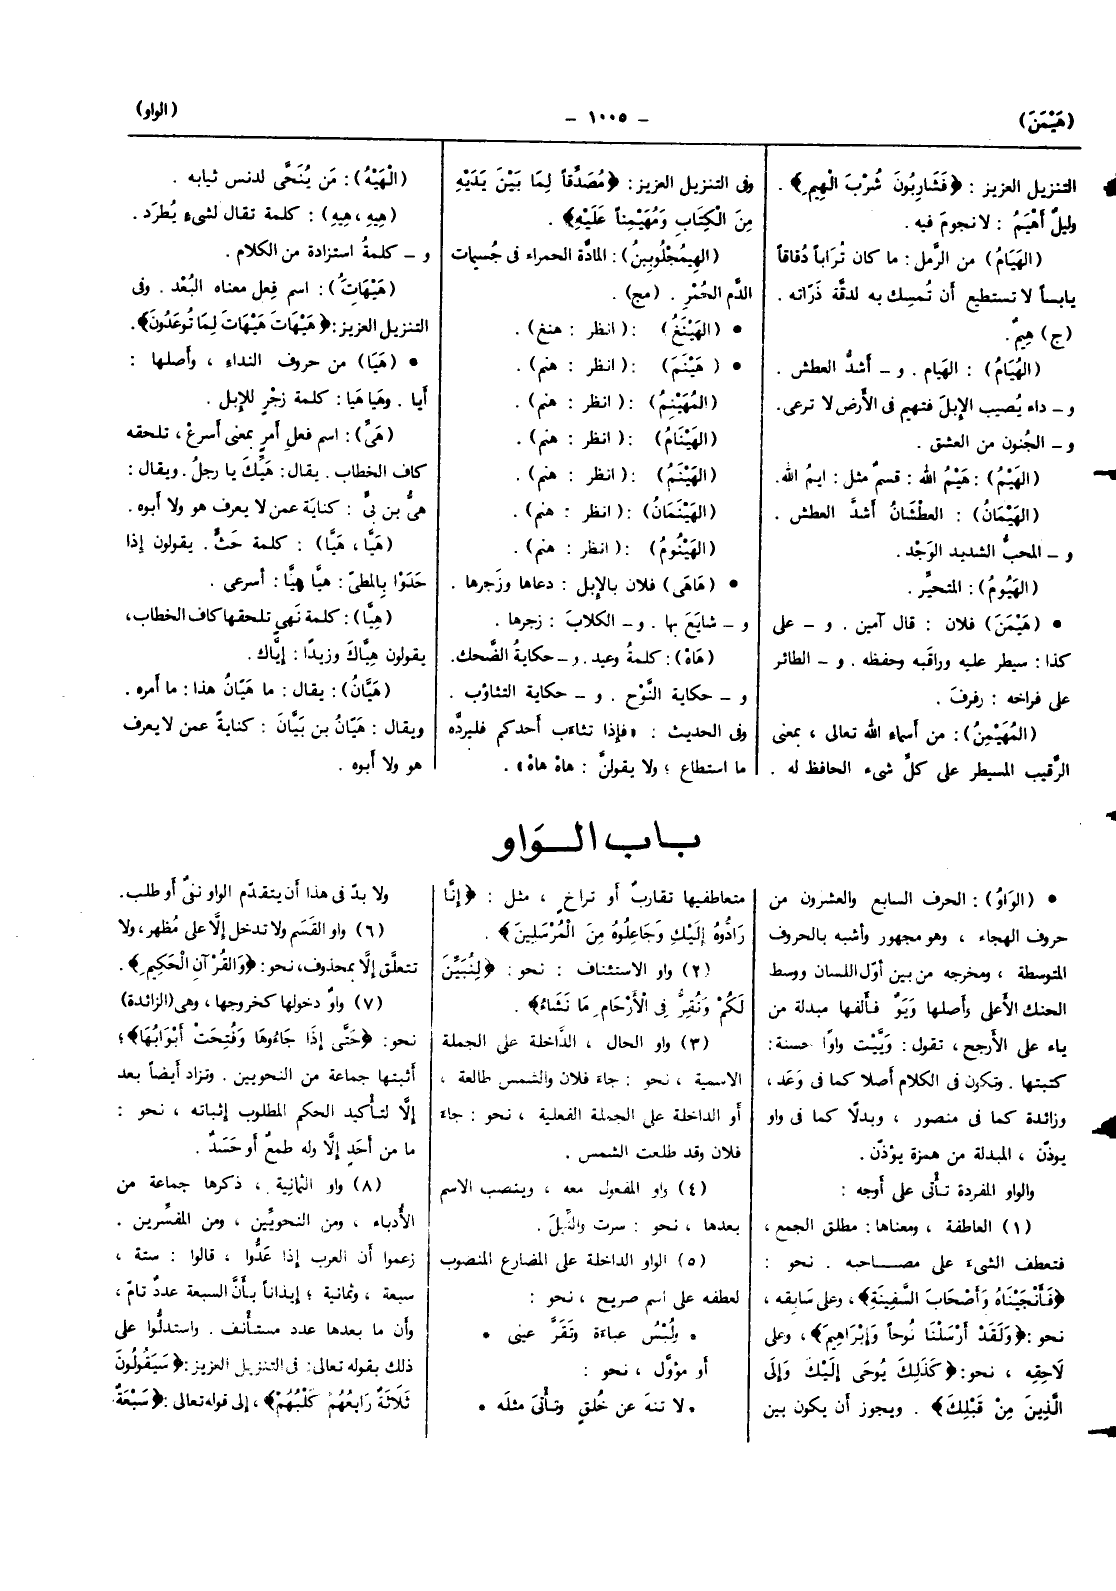 (هَيْمَنَ)
- ١٠٠٥ -
(الواو)
التنزيل العزيز : ﴿فَشَارِبُونَ شُرْبَ الْهِيمِ﴾ .
وليلٌ أَهْيَمُ : لا نجومَ فيه .
(الهَيَامُ) من الرَّمل : ما كان تُرَاباً دُقاقاً
يابساً لا تستطيع أن تُمسِك به لدقَّة ذَرّاته .
(ج) هِيمٌ .
(الهُيَامُ) : الهَيام . و – أشدُّ العطش .
و – داء يُصيب الإبلَ فتهيم فى الأَرض لا ترعى .
و – الجُنون من العشق .
(الهَيْمُ) : هَيْمُ الله : قسمٌ مثل : ايمُ الله .
(الهَيْمَانُ) : العطْشَانُ أشدَّ العطش .
و – المحبُّ الشديد الوَجْد .
(الهَيُومُ) : المتحيِّر .
• (هَيْمَنَ) فلان : قال آمين . و – على
كذا : سيطر عليه وراقبه وحفظه . و – الطائر
على فراخه : رفرفَ .
(المُهَيْمِنُ) : من أسماء الله تعالى ، بمعنى
الرَّقيب المسيطر على كلِّ شىء الحافظ له .
وفى التنزيل العزيز : ﴿مُصَدِّقاً لِمَا بَيْنَ يَدَيْهِ
مِنَ الْكِتَابِ وَمُهَيْمِناً عَلَيْهِ﴾ .
(الهِيمُجْلُوبِينُ) : المادَّة الحمراء فى جُسيمات
الدَّم الحُمْر . (مج) .
• (الهَيْنَغُ) : (انظر : هنغ) .
• (هَيْنَمَ) : (انظر : هنم) .
(المُهَيْنِمُ) : (انظر : هنم) .
(الهَيْنَامُ) : (انظر : هنم) .
(الهَيْنَمُ) : (انظر : هنم) .
(الهَيْنَمَانُ) : (انظر : هنم) .
(الهَيْنُومُ) : (انظر : هنم) .
• (هَاهَى) فلان بالإبل : دعاها وزَجرها .
و – شايَعَ بها . و – الكلابَ : زجرها .
(هَاهْ) : كلمةُ وعيد . و – حكايةُ الضَّحك .
و – حكاية النَّوْح . و – حكاية التثاوُب .
وفى الحديث : «فإذا تثاءَب أحدكم فليردَّه
ما استطاع ؛ ولا يقولنَّ : هاهْ هاهْ» .
(الْهَيْهُ) : مَن يُنَحَّى لدنس ثيابه .
(هِيهِ ، هِيهِ) : كلمة تقال لشىء يُطرَد .
و – كلمةُ استزادة من الكلام .
(هَيْهَاتَ) : اسم فِعل معناه البُعْد . وفى
التنزيل العزيز : ﴿هَيْهَاتَ هَيْهَاتَ لِمَا تُوعَدُونَ﴾ .
• (هَيَا) من حروف النداء ، وأصلها :
أَيا . وهَيا هَيا : كلمة زجْرٍ للإبل .
(هَىَّ) : اسم فعلِ أَمرٍ بمعنى أَسرعْ ، تلحقه
كاف الخطاب . يقال : هَيَّكَ يا رجلُ . ويقال :
هىُّ بن بىٍّ : كنايَة عمن لا يعرف هو ولا أبوه .
(هَيَّا ، هَيَّا) : كلمة حَثٍّ . يقولون إذا
حَدَوْا بِالمَطىّ : هيَّا هيَّا : أسرعى .
(هِيَّا) : كلمة نَهىٍ تلحقها كاف الخطاب ،
يقولون هِيَّاكَ وزيدًا : إيَّاك .
(هَيَّانُ) : يقال : ما هَيَّانُ هذا : ما أمره .
ويقال : هَيَّانُ بن بَيَّانَ : كنايةً عمن لا يعرف
هو ولا أبوه .
باب الـوَاو
• (الوَاوُ) : الحرف السابع والعشرون من
حروف الهجاء ، وهو مجهور وأشبه بالحروف
المتوسطة ، ومخرجه من بين أوّل اللسان ووسط
الحنك الأعلى وأصلها وَيَوٌ فألفها مبدلة من
ياء على الأرجح ، تقول : وَيَّيْت واوًا حسنة :
كتبتها . وتكون فى الكلام أصلا كما فى وَعَد ،
وزائدة كما فى منصور ، وبدلًا كما فى واو
يوذّن ، المبدلة من همزة يؤذّن .
والواو المفردة تأتى على أوجه :
(١) العاطفة ، ومعناها : مطلق الجمع ،
فتعطف الشىءَ على مصاحبه . نحو :
﴿فَأَنْجَيْنَاهُ وَأَصْحَابَ السَّفِينَةِ﴾ ، وعلى سابقه ،
نحو : ﴿وَلَقَدْ أَرْسَلْنَا نُوحاً وَإِبْرَاهِيمَ﴾ ، وعلى
لَاحِقِه ، نحو : ﴿كَذَلِكَ يُوحَى إِلَيْكَ وَإِلَى
الَّذِينَ مِنْ قَبْلِكَ﴾ . ويجوز أن يكون بين
متعاطفيها تقاربٌ أو تراخٍ ، مثل : ﴿إِنَّا
رَادُّوهُ إِلَيْكِ وَجَاعِلُوهُ مِنَ الْمُرْسَلِينَ﴾ .
(٢) واو الاستئناف : نحو : ﴿لِنُبَيِّنَ
لَكُمْ وَنُقِرُّ فِى الْأَرْحَامِ مَا نَشَاءُ﴾ .
(٣) واو الحال ، الدَّاخلة على الجملة
الاسمية ، نحو : جاءَ فلان والشمس طالعة ،
أو الداخلة على الجملة الفعلية ، نحو : جاءَ
فلان وقد طلعت الشمس .
(٤) واو المفعول معه ، وينتصب الاسم
بعدها ، نحو : سرت والنِّيلَ .
(٥) الواو الداخلة على المضارع المنصوب
لعطفه على اسم صريح ، نحو :
• ولُبْسُ عباءَة وتَقَرَّ عينى •
أو مؤوَّل ، نحو :
• لا تنهَ عن خُلقٍ وتأتىَ مثلَه •
ولا بدّ فى هذا أن يتقدّم الواو نفىٌ أو طلب .
(٦) واو القَسَم ولا تدخل إلَّا على مُظهر ، ولا
تتعلَّق إلَّا بمحذوف ، نحو : ﴿وَالقُرْآنِ الْحَكِيمِ﴾ .
(٧) واوٌ دخولها كخروجها ، وهى (الزائدة)
نحو : ﴿حَتَّى إذَا جَاءُوهَا وَفُتِحَتْ أَبْوَابُهَا﴾ ؛
أثبتها جماعة من النحويين . وتزاد أيضاً بعد
إلَّا لتأكيد الحكم المطلوب إثباته ، نحو :
ما من أَحَدٍ إلَّا وله طمعٌ أو حَسَدٌ .
(٨) واو الثمانِية ، ذكرها جماعة من
الأُدباء ، ومن النحويِّين ، ومن المفسِّرين .
زعموا أن العرب إذا عَدُّوا ، قالوا : ستة ،
سبعة ، وثمانية ؛ إيذاناً بأنَّ السبعة عددٌ تامّ ،
وأن ما بعدها عدد مستأنف . واستدلُّوا على
ذلك بقوله تعالى : فى التنزيل العزيز : ﴿سَيَقُولُونَ
ثَلَاثَةٌ رَابِعُهُمْ كَلْبُهُمْ﴾ ، إلى قوله تعالى : ﴿سَبْعَةٌ